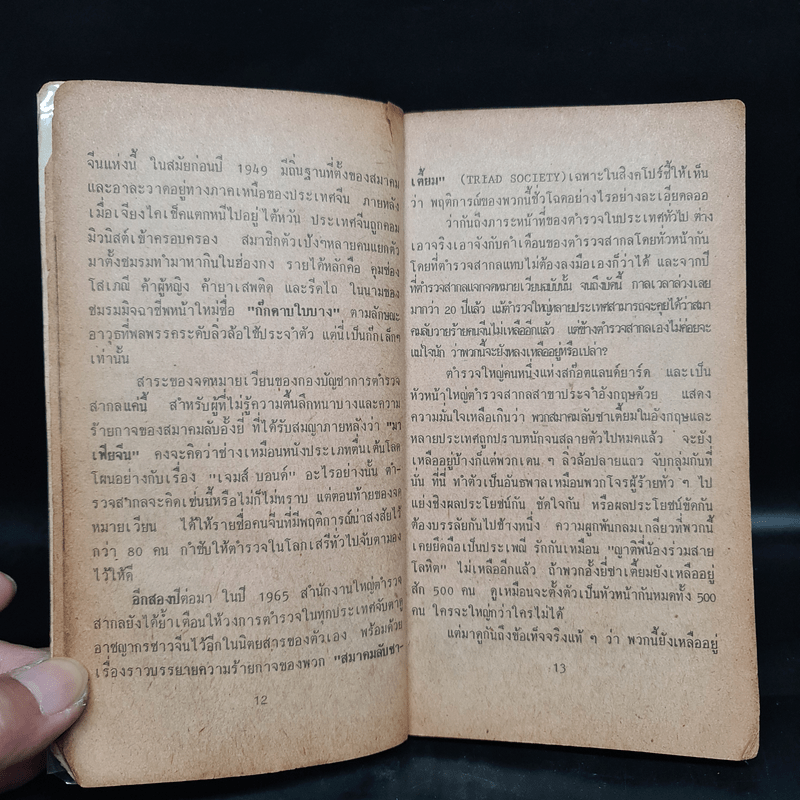 จีนแห่งนี้ ในสมัยก่อนปี 1949 มีถิ่นฐานที่ตั้งของสมาคม
และอาละวาดอยู่ทางภาคเหนือของประเทศจีน ภายหลัง
เมื่อเจียงไคเช็คแตกหนีไปอยู่ไต้หวัน ประเทศจีนถูกคอม
มิวนิสต์เข้าครอบครอง สมาชิกตัวเป้งๆหลายคนแยกตัว
มาตั้งชมรมทำมาหากินในฮ่องกง รายได้หลักคือ คุมซ่อง
โสเภณี ค้าผู้หญิง ค้ายาเสพติด และรีดไถ ในนามของ
ชมรมมิจฉาชีพหน้าใหม่ชื่อ "กั๊กดาบใบบาง" ตามลักษณะ
อาวุธที่พลพรรคระดับลิ่วล้อใช้ประจำตัว แต่นี่เป็นกั๊กเล็กๆ
เท่านั้น
สาระของจดหมายเวียนของกองบัญชาการตำรวจ
สากลแค่นี้ สำหรับผู้ที่ไม่รู้ความตื้นลึกหนาบางและความ
ร้ายกาจของสมาคมลับอั้งยี่ ที่ได้รับสมญาภายหลังว่า "มา
เฟียจีน" คงจะคิดว่าช่างเหมือนหนังประเภทตื่นเต้นโลด
โผนอย่างกับเรื่อง "เจมส์ บอนด์" อะไรอย่างนั้น ตำ-
รวจสากลจะคิดเช่นนี้หรือไม่ก็ไม่ทราบ แต่ตอนท้ายของจด
หมายเวียน ได้ให้รายชื่อคนจีนที่มีพฤติการณ์น่าสงสัยไว้
กว่า 80 คน กำชับให้ตำรวจในโลกเสรีทั่วไปจับตามอง
ไว้ให้ดี
อีกสองปีต่อมา ในปี 1965 สำนักงานใหญ่ตำรวจ
สากลยังได้ย้ำเตือนให้วงการตำรวจในทุกประเทศจับตาดู
อาชญากรชาวจีนไว้อีกในนิตยสารของตัวเอง พร้อมด้วย
เรื่องราวบรรยายความร้ายกาจของพวก "สมาคมลับซา-
12
เตี้ยม" (TRIAD SOCIETY)เฉพาะในสิงคโปร์ชี้ให้เห็น
ว่า พฤติการณ์ของพวกนี้ชั่วโฉดอย่างไรอย่างละเอียดลออ
ว่ากันถึงภาระหน้าที่ของตำรวจในประเทศทั่วไป ต่าง
เอาจริงเอาจังกับคำเตือนของตำรวจสากลโดยทั่วหน้ากัน
โดยที่ตำรวจสากลแทบไม่ต้องลงมือเองก็ว่าได้ และจากปี
ที่ตำรวจสากลแจกจดหมายเวียนฉบับนั้น จนถึงบัดนี้ กาลเวลาล่วงเลย
มากว่า 20 ปีแล้ว แม้ตำรวจใหญ่หลายประเทศสามารถจะคุยได้ว่าสมา
คมลับวายร้ายคนจีนไม่เหลืออีกแล้ว แต่ข้างตำรวจสากลเองไม่ค่อยจะ
แน่ใจนัก ว่าพวกนี้จะยังหลงเหลืออยู่หรือเปล่า?
ตำรวจใหญ่คนหนึ่งแห่งสก๊อตแลนด์ยาร์ด และเป็น
หัวหน้าใหญ่ตำรวจสากลสาขาประจำอังกฤษด้วย แสดง
ความมั่นใจเหลือเกินว่า พวกสมาคมลับซาเตี้ยมในอังกฤษและ
หลายประเทศถูกปราบหนักจนสลายตัวไปหมดแล้ว จะยัง
เหลืออยู่บ้างก็แต่พวกเดน ๆ ลิ่วล้อปลายแถว จับกลุ่มกันที่
นั่น ที่นี่ ทำตัวเป็นอันธพาลเหมือนพวกโจรผู้ร้ายทั่ว ๆ ไป
แย่งชิงผลประโยชน์กัน ขัดใจกัน หรือผลประโยชน์ขัดกัน
ต้องบรรลัยกันไปข้างหนึ่ง ความผูกพันกลมเกลียวที่พวกนี้
เคยยึดถือเป็นประเพณี รักกันเหมือน "ญาติพี่น้องร่วมสาย
โลหิต" ไม่เหลืออีกแล้ว ถ้าพวกอั้งยี่ซาเตี้ยมยังเหลืออยู่
สัก 500 คน ดูเหมือนจะตั้งตัวเป็นหัวหน้ากันหมดทั้ง 500
คน ใครจะใหญ่กว่าใครไม่ได้
แต่มาดูกันถึงข้อเท็จจริงแท้ ๆ ว่า พวกนี้ยังเหลืออยู่
13